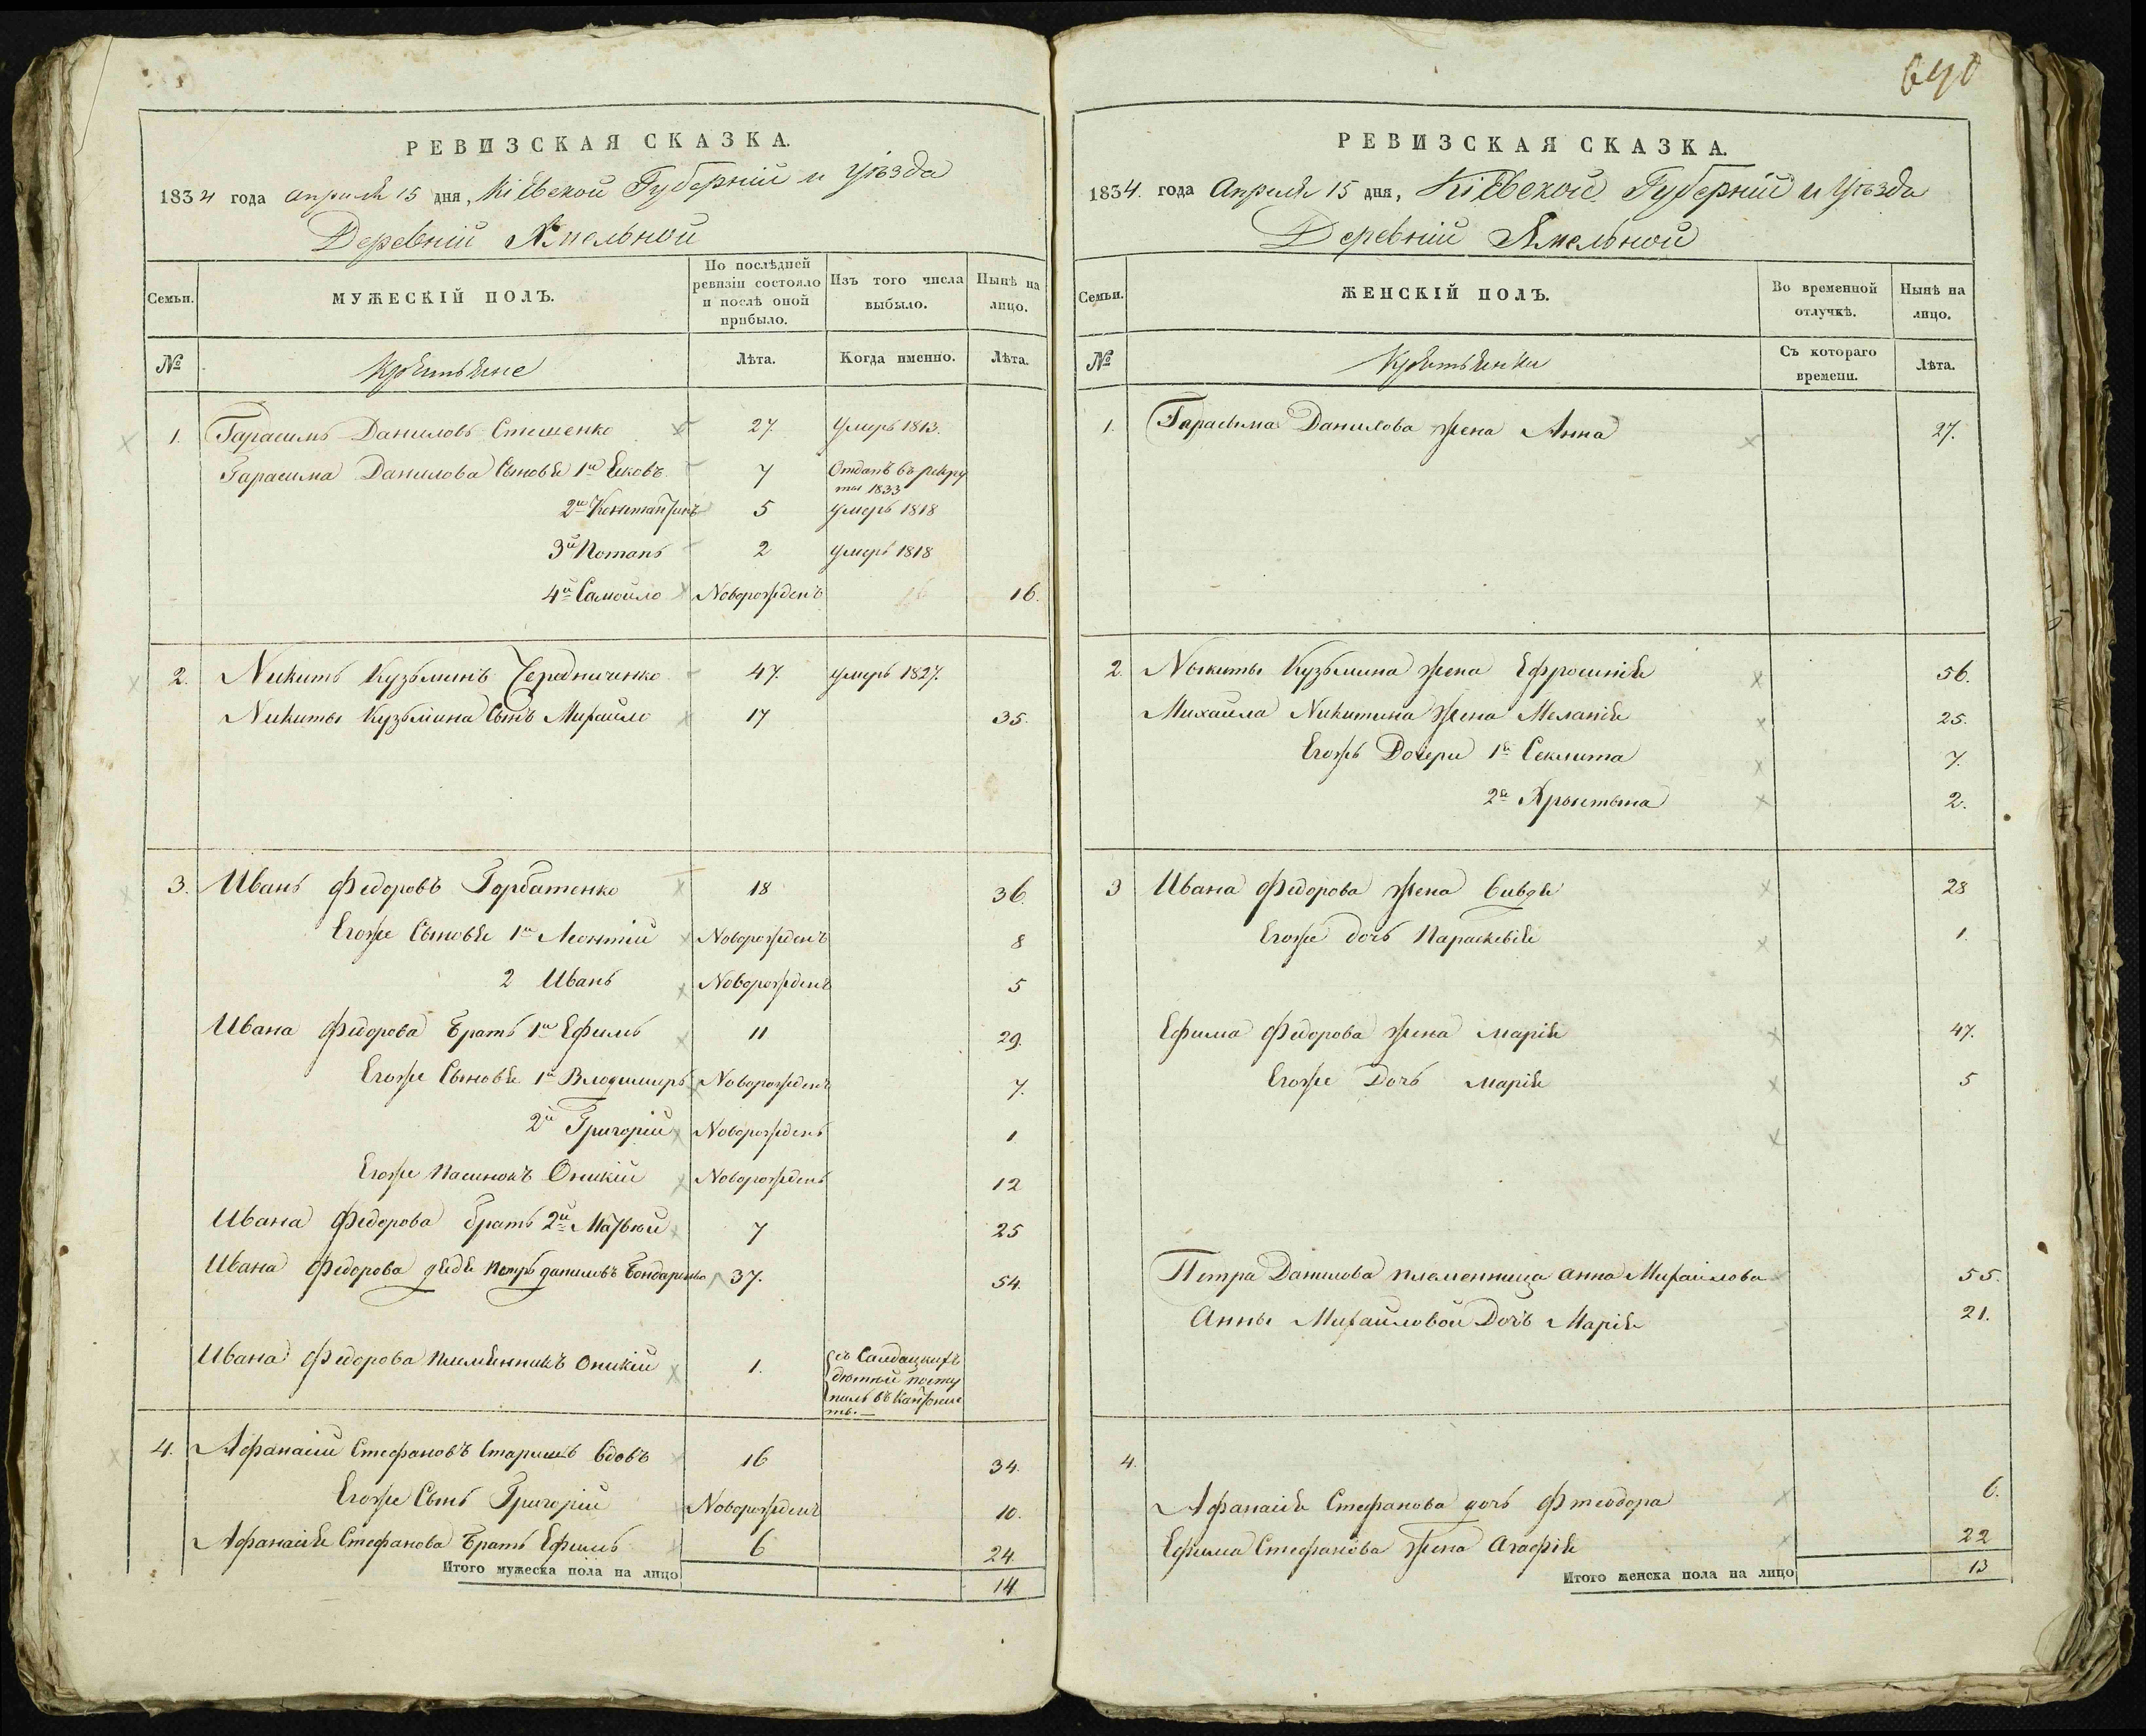 РЕВИЗСКАЯ СКАЗКА.
1834 года Апреля 15 дня, Кіевской Губерніи и Уѣзда
Деревніи Ямельной
Семьи.
МУЖЕСКІЙ ПОЛЪ.
По послѣдней ревизіи состояло и послѣ оной прибыло.
Изъ того числа выбыло.
Нынѣ на лицо.
№
Крестьяне
Лѣта.
Когда именно.
Лѣта.
1. Гарасимъ Даниловъ Стешенко 27. умеръ 1813.
Гарасима Данилова Сыновья 1й Яковъ 7 Отданъ въ рекру
ты 1833
2й Константинъ 5 умеръ 1818
3й Потапъ 2 умеръ 1818
4й Самойло Новорожденъ 16.
2. Никита Кузьминъ Середниченко 47. умеръ 1827.
Никиты Кузьмина Сынъ Михайло 17 35.
3. Иванъ Федоровъ Горбатенко 18 36.
Егоже Сыновья 1й Леонтій Новорожденъ 8
2 Иванъ Новорожденъ 5
Ивана Федорова Братъ 1й Ефимъ 11 29.
Егоже Сыновья 1й Влодимиръ Новорожденъ 7.
2й Григорій Новорожденъ 1
Егоже Пасинокъ Оникій Новорожденъ 12
Ивана Федорова братъ 2й Матвѣй 7 25
Ивана Федорова дядя Петръ Даниловъ Бондаренко 37. 54.
Ивана Федорова племянникъ Оникій 1. съ Салдацкихъ
дѣтей посту
пилъ въ Кантонис
ты.
4. Афанасій Стефановъ Старишъ вдовъ 16 34.
Егоже Сынъ Григорій Новорожденъ 10.
Афанасія Стефанова Братъ Ефимъ 6 24
Итого мужеска пола на лицо 14
690
РЕВИЗСКАЯ СКАЗКА.
1834. года Апреля 15 дня, Кіевской Губерніи и Уѣзда
Деревніи Ямельной
Семьи.
ЖЕНСКІЙ ПОЛЪ.
Во временной отлучкѣ.
Нынѣ на лицо.
№
Крестьянки
Съ котораго времени.
Лѣта.
1. Гарасима Данилова жена Анна 27.
2. Никиты Кузьмина жена Ефросинія 56.
Михайла Никитина жена Меланія 25.
Егожъ Дочери 1я Секлита 7.
2я Хрыстына 2.
3 Ивана Федорова жена Евдя 28
Егоже дочь Параскевія 1.
Ефима Федорова жена Марія 47.
Егоже Дочь Марія 5
Петра Данилова племенница Анна Михайлова 55.
Анны Михайловой Дочь Марія 21.
4.
Афанасія Стефанова дочь Фтеодора 6.
Ефима Стефанова жена Агафія 22
Итого женска пола на лицо 13